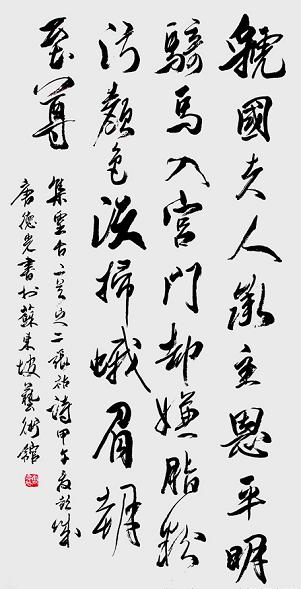 虢國夫人承主恩平明
騎馬入宮門却嫌脂粉
污顏色淡掃蛾眉朝
至尊
集靈台二首之二張祜詩甲午
唐德光書於蘇東坡藝術館